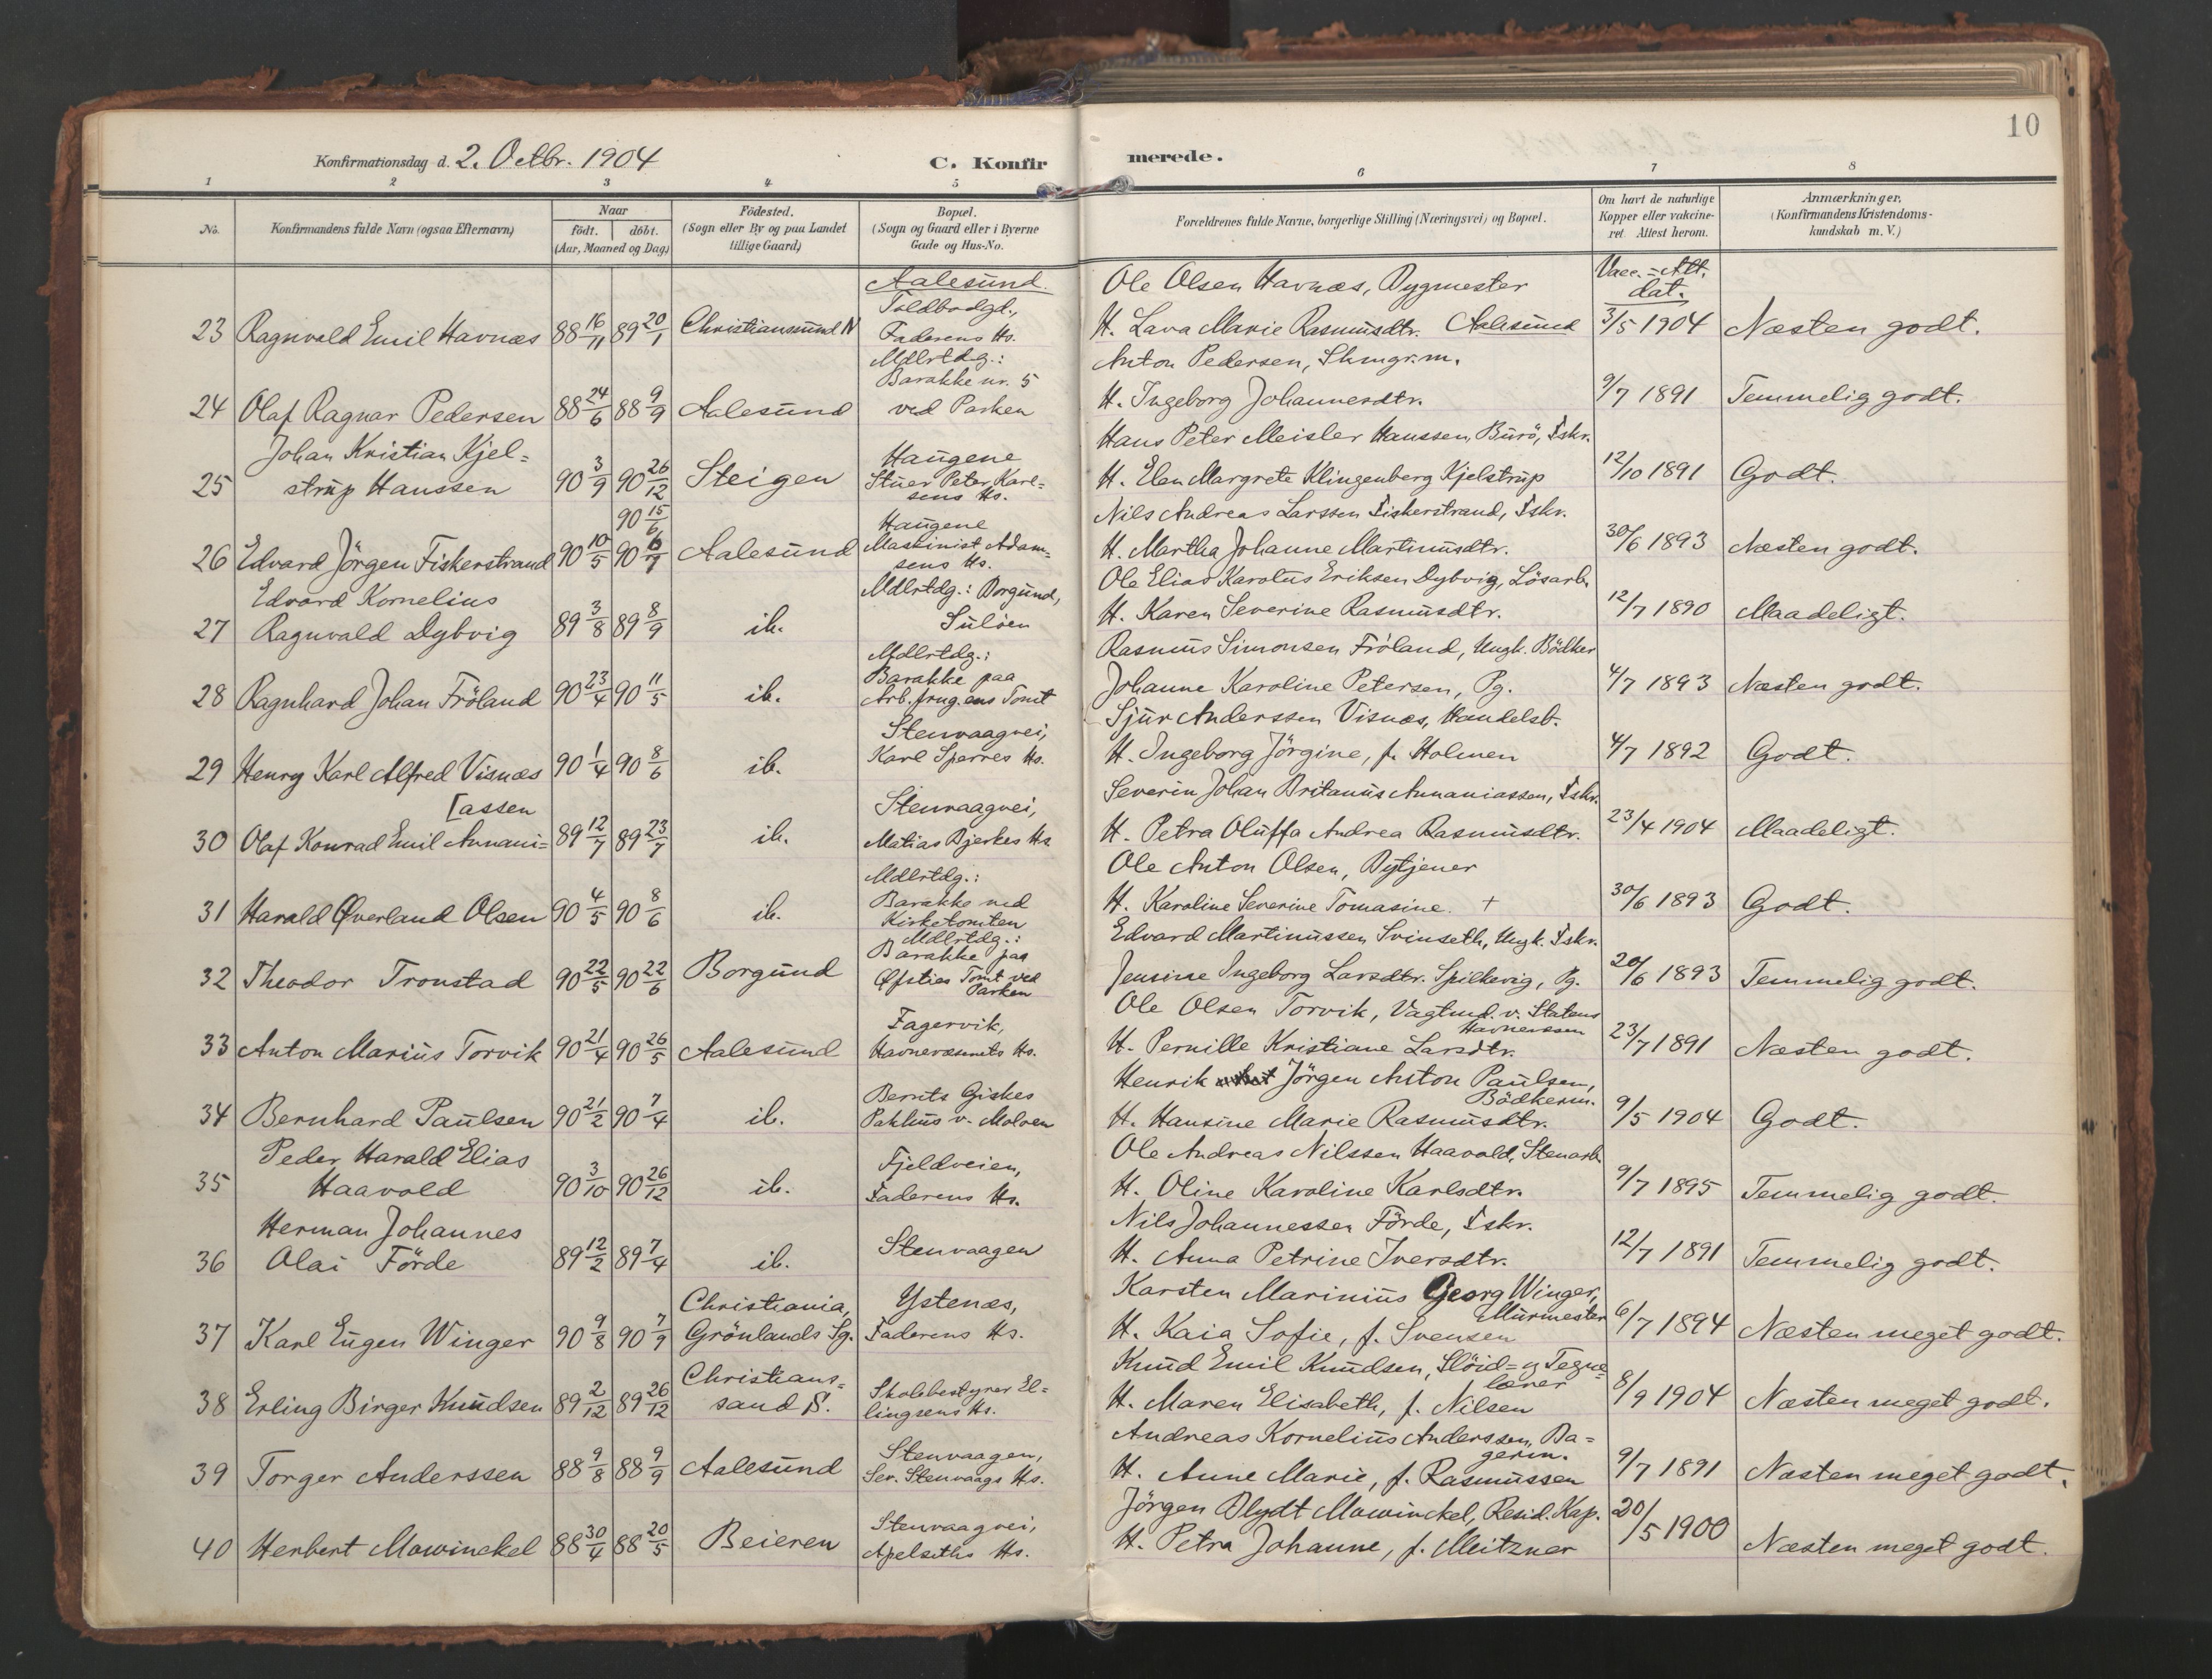 10
Konfirmationsdag d. 2. Octbr. 1904 C. Konfirmerede.
1 2 3 4 5 6 7 8
No. Konfirmandens fulde Navn (ogsaa Efternavn) Naar födt. döbt. (Aar, Maaned og Dag) Födested. (Sogn eller By og paa Landet tillige Gaard) Bopæl. (Sogn og Gaard eller i Byerne Gade og Hus-No. Forældrenes fulde Navne, borgerlige Stilling (Næringsvei) og Bopæl. Om havt de naturlige Kopper eller vakcineret. Attest herom. Anmærkninger. (Konfirmandens Kristendomskundskab m. V.)
Aalesund. Ole Olsen Havnæs, Bygmester Vacc.-Att. dat.
Toldbodgt.,
23 Ragnvald Emil Havnæs 88 16/11 89 20/1 Christianssund N Faderens Hs. H. Lava Marie Rasmusdtr. Aalesund 3/5 1904 Næsten godt.
Mdlrtdg.: Anton Pedersen, Skmgr.m.
Barakke nr. 5
24 Olaf Ragnar Pedersen 88 24/6 88 9/9 Aalesund ved Parken H. Ingeborg Johannesdtr. 9/7 1891 Temmelig godt.
Johan Kristian Kjel= Haugene Hans Peter Meisler Hanssen, Burö, Fskr.
25 strup Hanssen 90 3/9 90 26/12 Steigen Stuer Peter Karl= H. Elen Margrete Klingenberg Kjelstrup 12/10 1891 Godt.
sens Hs.
90 15/6 Haugene Nils Andreas Larssen Fiskerstrand, Fskr.
26 Edvard Jörgen Fiskerstrand 90 10/5 90 6/7 Aalesund Maskinist Adam= H. Martha Johanne Martinusdtr. 30/6 1893 Næsten godt.
sens Hs.
Edvard Kornelius Mdlrtdg.: Borgund, Ole Elias Karolus Eriksen Dybvig, Lösarb.
27 Ragnvald Dybvig 89 3/8 89 8/9 ib. Sulöen H. Karen Severine Rasmusdtr. 12/7 1890 Maadeligt.
Mdlrtdg.: Rasmus Simonsen Fröland, Ungk. Bödker
Barakke paa
28 Ragnhard Johan Fröland 90 23/4 90 11/5 ib. Arb.frug.ens Tomt Johanne Karoline Petersen, Pg. 4/7 1893 Næsten godt.
Stenvaagvei, Sjur Anderssen Visnæs, Handelsb.
29 Henry Karl Alfred Visnæs 90 1/4 90 8/6 ib. Karl Sperres Hs. H. Ingeborg Jörgine, f. Holmen 4/7 1892 Godt.
[assen Stenvaagvei, Severin Johan Britanus Annaniassen, Fskr.
30 Olaf Konrad Emil Annani= 89 12/7 89 23/7 ib. Matias Bjerkes Hs. H. Petra Oluffa Andrea Rasmusdtr. 23/4 1904 Maadeligt.
Mdlrtdg.: Ole Anton Olsen, Bytjener
Barakke ved
31 Harald Øverland Olsen 90 4/5 90 8/6 ib. Kirketomten H. Karoline Severine Tomasine. + 30/6 1893 Godt.
Mdlrtdg.: Edvard Martinussen Svinseth, Ungk. Fskr.
Barakke paa
32 Theodor Tronstad 90 22/5 90 22/6 Borgund Øfsties Tomt ved Parken Jensine Ingeborg Larsdtr. Spilkevig, Pg. 20/6 1893 Temmelig godt.
Fagervik, Ole Olsen Torvik, Vagtmd. v. Statens Havnevæsen
33 Anton Marius Torvik 90 21/4 90 26/5 Aalesund Havnevæsnets Hs. H. Pernille Kristiane Larsdtr. 23/7 1891 Næsten godt.
Bernts Giskes Henrik Jörgen Anton Paulsen, Bödkerm.
34 Bernhard Paulsen 90 21/2 90 7/4 ib. Pakhus v. Molven H. Hansine Marie Rasmusdtr. 9/5 1904 Godt.
Peder Harald Elias Fjeldveien, Ole Andreas Nilssen Haavold, Stenarb.
35 Haavold 90 3/10 90 26/12 ib. Faderens Hs. H. Oline Karoline Karlsdtr. 9/7 1895 Temmelig godt.
Herman Johannes Nils Johannessen Förde, Fskr.
36 Olai Förde 89 12/2 89 7/4 ib. Stenvaagen H. Anna Petrine Iversdtr. 12/7 1891 Temmelig godt.
Christiania, Ystenæs, Karsten Marinius Georg Winger, Murmester
37 Karl Eugen Winger 90 9/8 90 7/9 Grönlands Sg. Faderens Hs. H. Kaia Sofie, f. Svensen 6/7 1894 Næsten meget godt.
Christians= Skolebestyrer El= Knud Emil Knudsen, Slöid= og Tegne= lærer
38 Erling Birger Knudsen 89 2/12 89 26/12 sand S. lingsens Hs. H. Maren Elisabeth, f. Nilsen 8/9 1904 Næsten meget godt.
Stenvaagen, Andreas Kornelius Anderssen, Ba= germ.
39 Torger Anderssen 88 9/8 88 9/9 Aalesund Sev. Stenvaags Hs. H. Anne Marie, f. Rasmussen 9/7 1891 Næsten meget godt.
Stenvaagvei, Jörgen Blydt Mowinckel, Resid. Kap.
40 Herbert Mowinckel 88 30/4 88 20/5 Beieren Apelseths Hs. H. Petra Johanne, f. Meitzner 20/5 1900 Næsten meget godt.